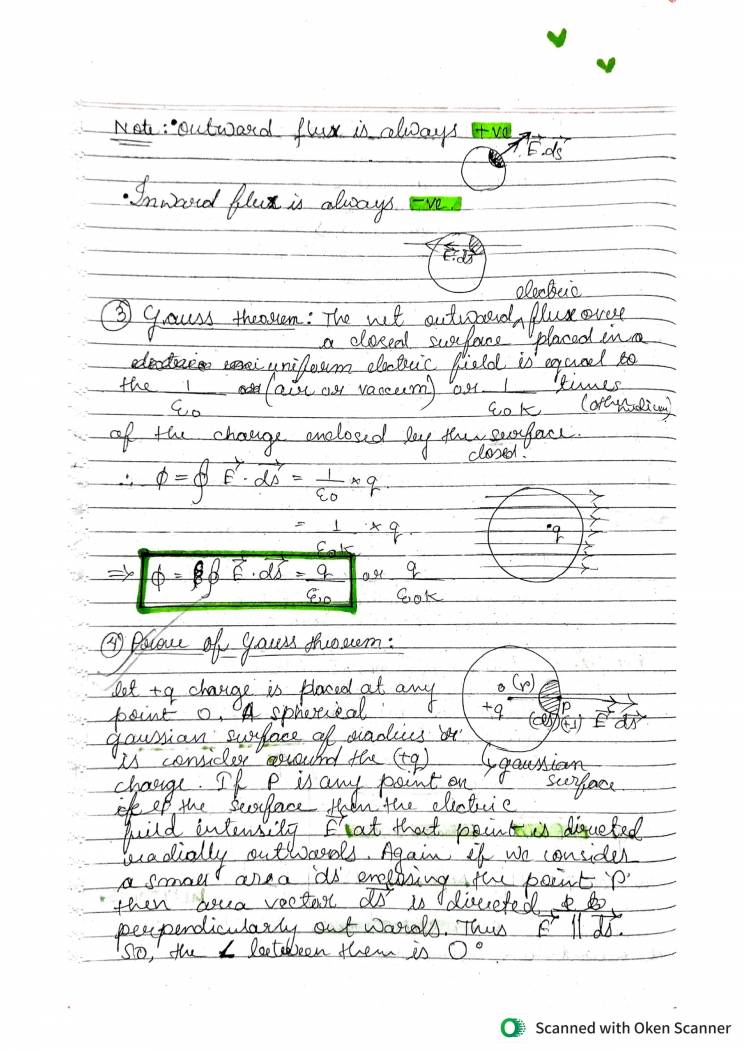 Note: • outward flux is always +ve
E.ds
• Inward flux is always -ve.
E.ds
electric
③ Gauss theorem: The net outward ^ flux over
a closed surface placed in a
uniform electric field is equal to
the 1/ε0 (air or vaccum) or 1/ε0K times (other medium)
of the charge enclosed by the surface.
closed.
∴ ϕ = ∮ E . ds = 1/ε0 × q.
= 1/ε0K × q.
•q
⇒ ϕ = ∮ E . ds = q/ε0 or q/ε0K
④ Prove of Gauss theorem:
let +q charge is placed at any
point O. A spherical
gaussian surface of radius 'r'
is consider around the (+q)
charge. If P is any point on
the surface then the electric
field intensity E at that point is directed
radially outwards. Again if we consider
a small area ds enclosing the point 'P'
then area vector ds is directed
perpendicularly outwards. Thus E || ds.
So, the ∠ between them is 0°
O (r)
+q
P
(ds) (+1) E ds
↳ gaussian
surface
Scanned with Oken Scanner